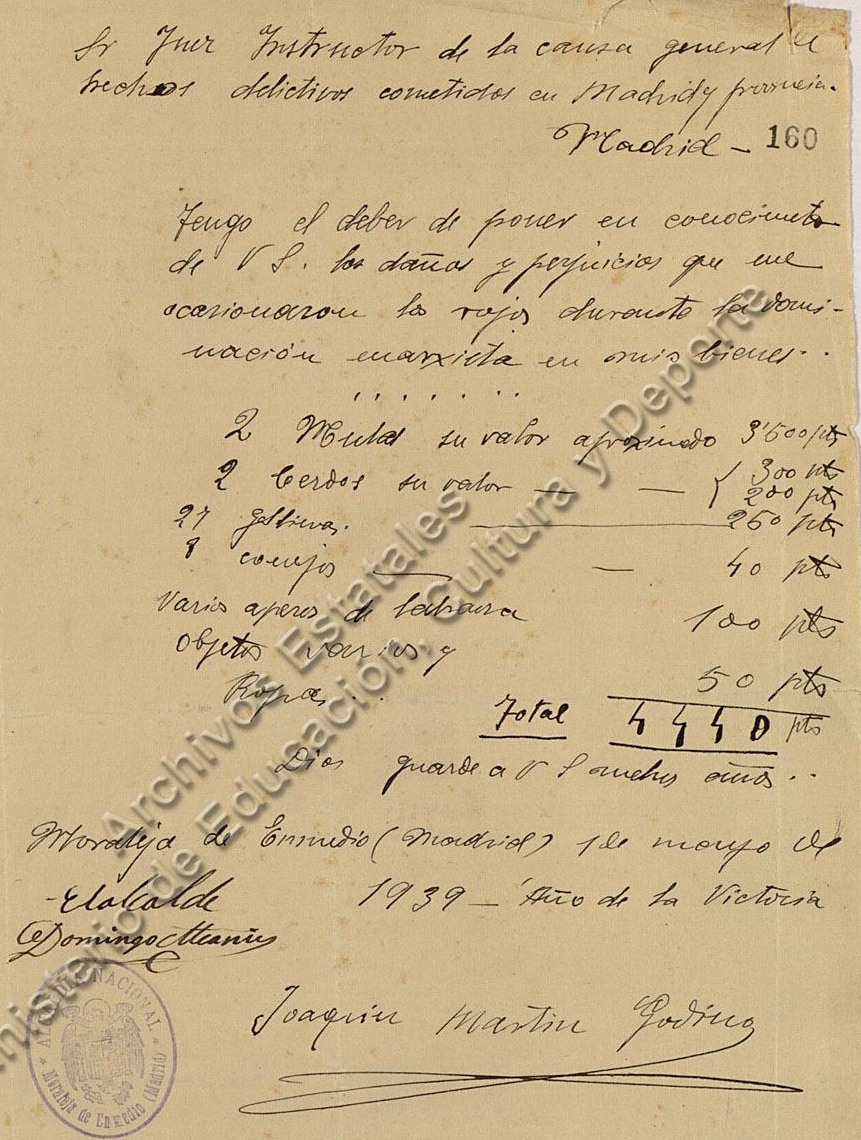 Sr Juez Instructor de la causa general de
hechos delictivos cometidos en Madrid y provincia.
Madrid - 160
Tengo el deber de poner en conocimeto
de V S. los daños y perjuicios que me
ocasionaron los rojos durante la domi-
nación marxista en mis bienes..
2 Mulas su valor aproximado 3'500 pts
2 Cerdos su valor — — { 300 pts
200 pts
27 gallinas. — 250 pts
8 conejos — — 40 pts
Varios aperos de labranza 100 pts
Objetos varios y
Ropas.. 50 pts
Total 4440 pts
Dios guarde a V S muchos años..
Moraleja de Enmedio (Madrid) 1 de mayo de
1939 - Año de la Victoria
El alcalde
Domingo
Joaquin Martin Godino
ALCALDIA NACIONAL
Moraleja de Enmedio (Madrid)
Archivos Estatales
Ministerio de Educación, Cultura y Deporte